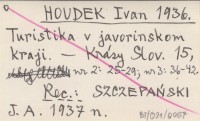 HOUDEK Ivan 1936.
Turistika v javorinskom
kraji. — Krásy Slov. 15,
nr 2: 25-29; nr 3: 36-42.
Rec.: SZCZEPAŃSKI
J. A. 1937 n.